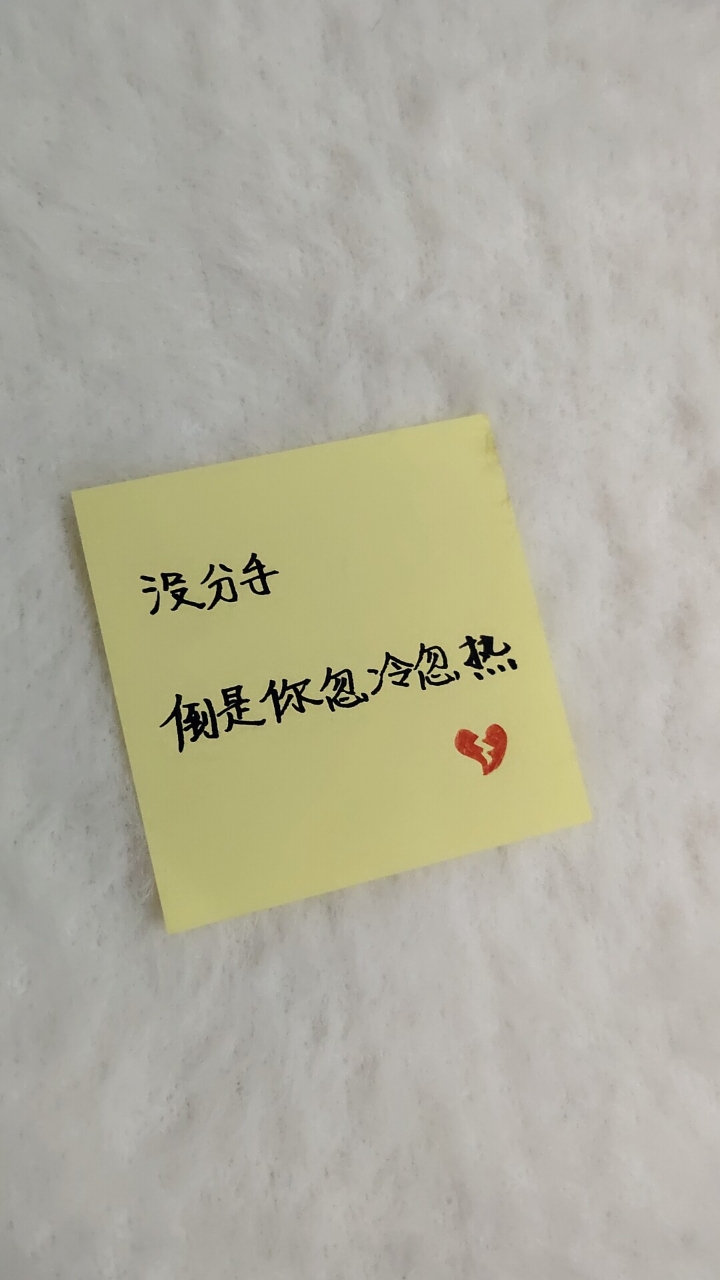 没分手
倒是你忽冷忽热